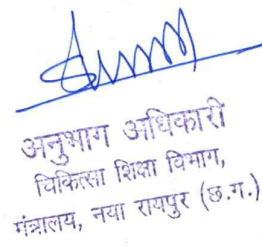 अनुभाग अधिकारी
चिकित्सा शिक्षा विभाग,
मंत्रालय, नया रायपुर (छ.ग.)